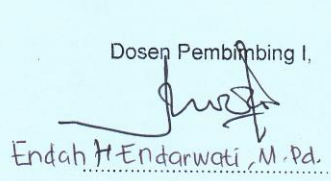 Dosen Pembimbing I,
Endah H Endarwati, M.Pd.